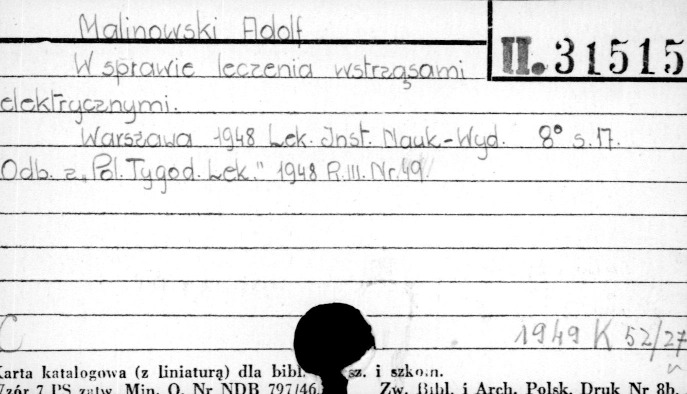 Malinowski Adolf
II. 31515
W sprawie leczenia wstrząsami
elektrycznymi.
Warszawa 1948 Lek. Inst. Nauk-Wyd. 8° s.17.
Odb. z „Pol. Tygod. Lek." 1948 R.III. Nr.49.
C 1949 K 52/27
Karta katalogowa (z liniaturą) dla bibl. sz. i szkoln.
Wzór 7 PS zatw. Min. O. Nr NDB 797/46. Zw. Bibl. i Arch. Polsk. Druk Nr 8b.